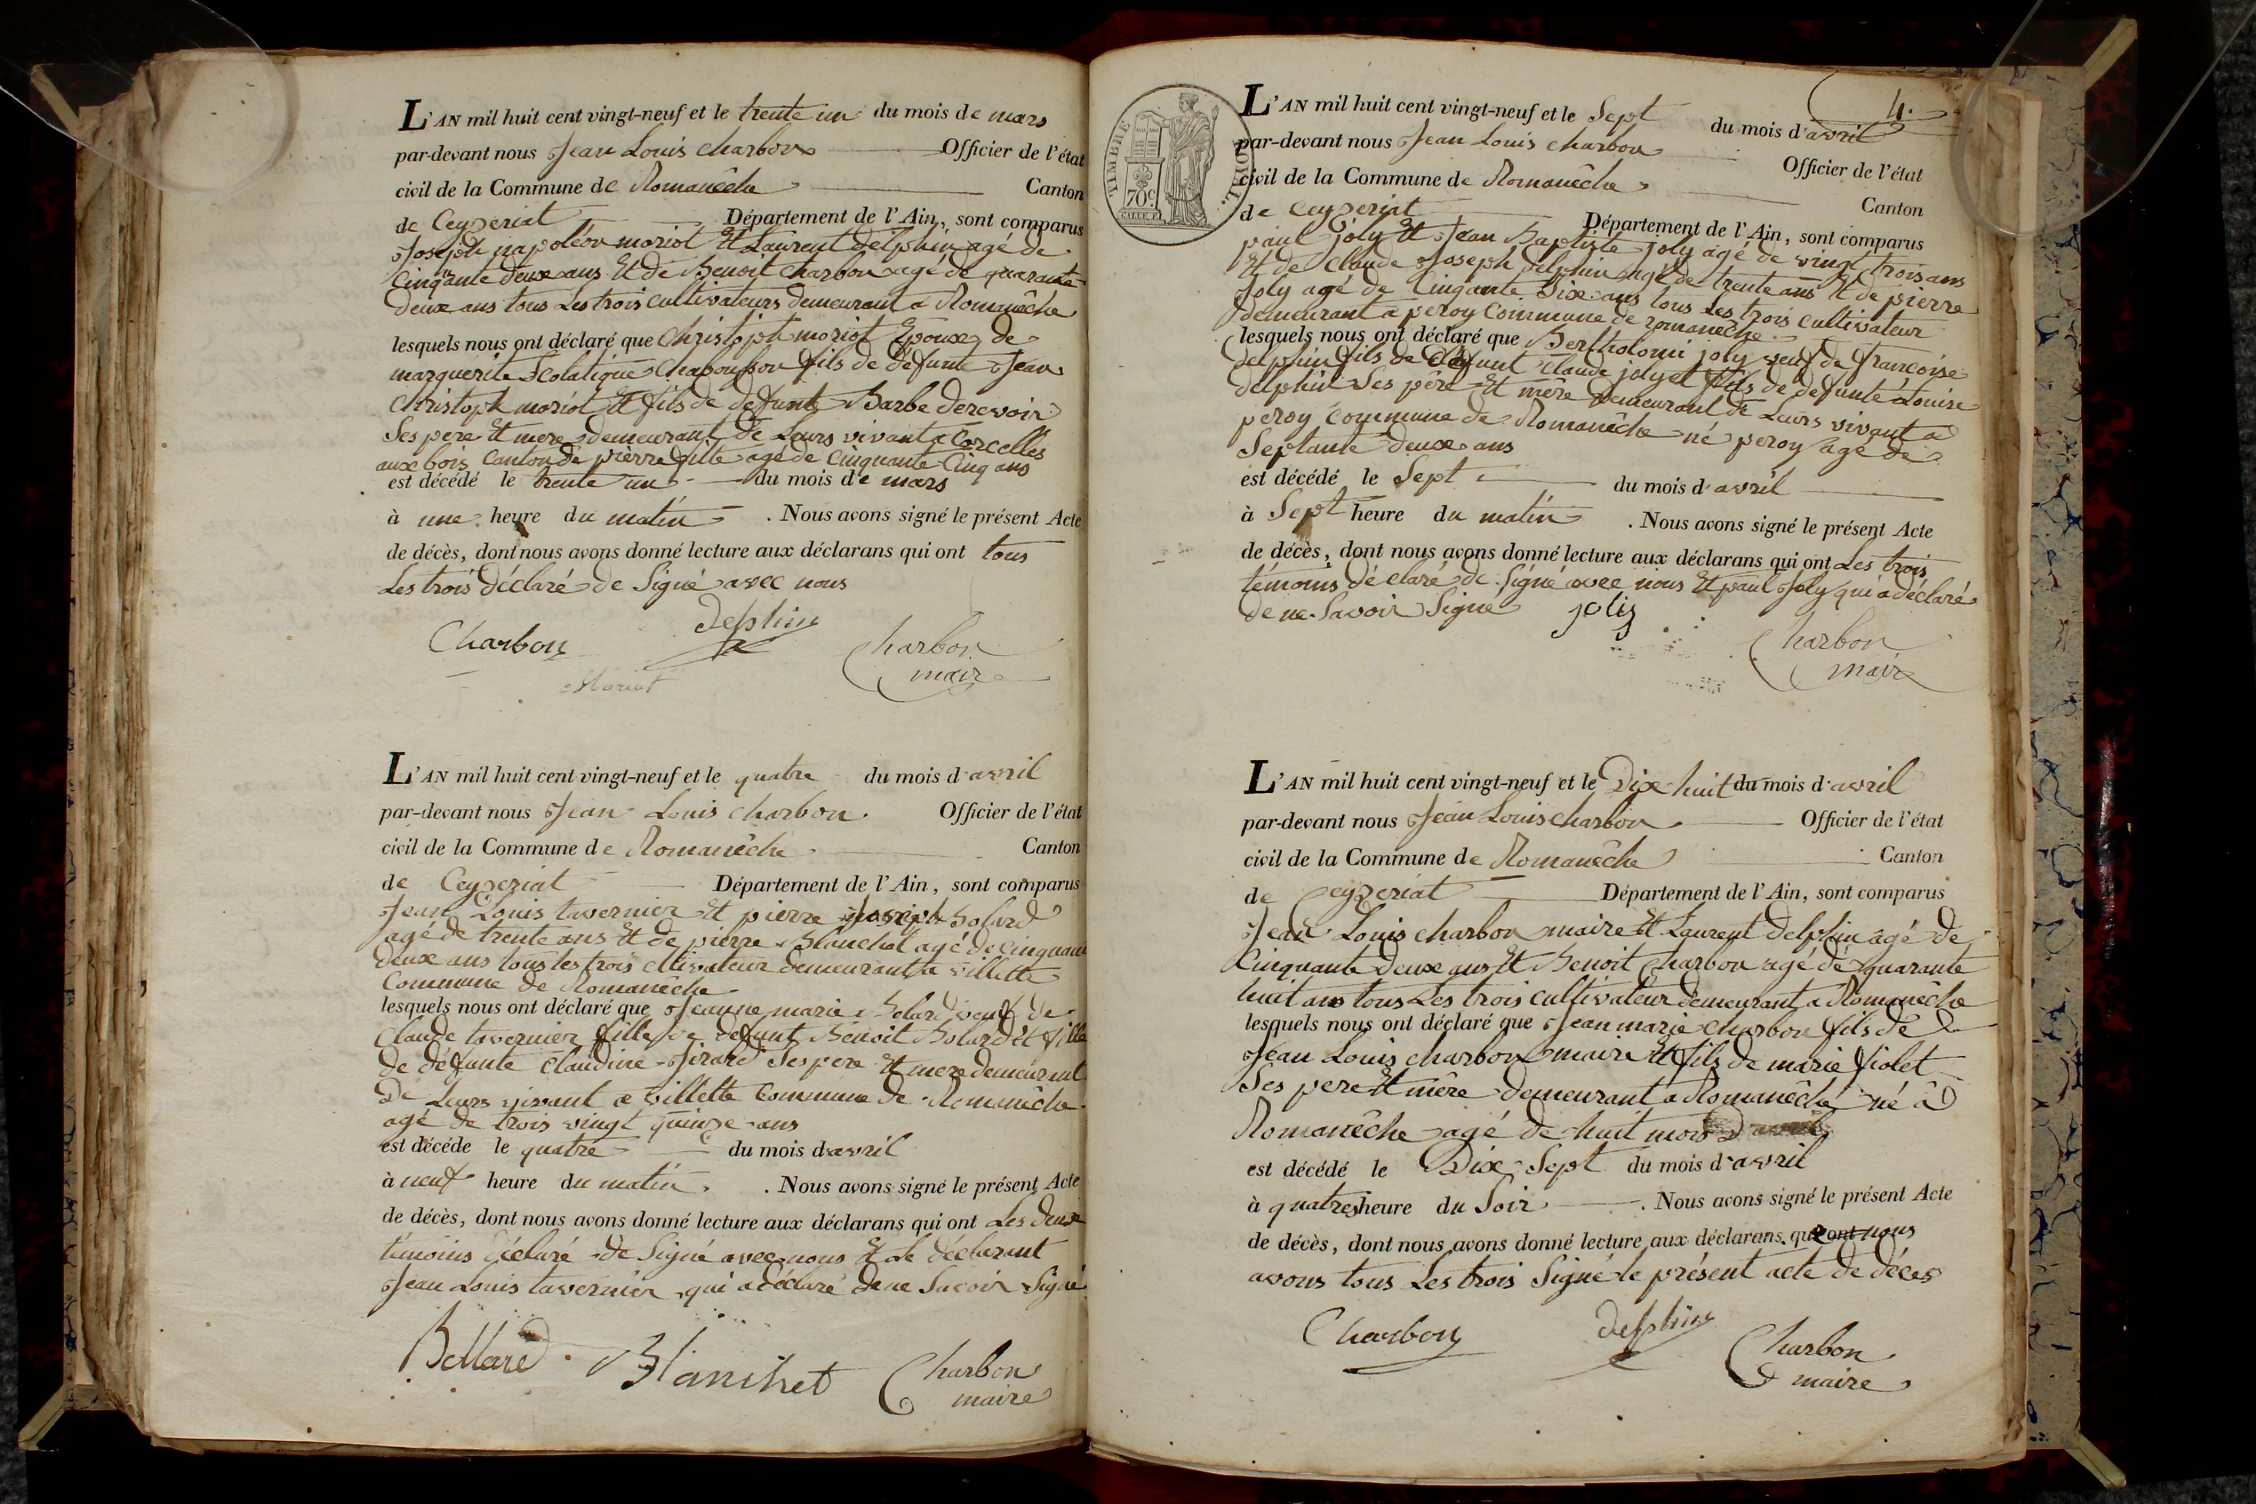 L'AN mil huit cent vingt-neuf et le trente un du mois de mars
par-devant nous Jean Louis charbon Officier de l'état
civil de la Commune de Romanêche Canton
de Ceyzeriat Département de l'Ain, sont comparus
Joseph napoléon moriot Et Laurent delphin agé de
Cinqante deux ans Et de Benoit charbon agé de quarante
deux ans tous Les trois cultivateurs demeurant a Romanêche
lesquels nous ont déclaré que Christoph moriot Epoux de
marguerite Scolatique fils de défunt Jean
Christoph moriot Et fils de defunte Barbe derevoir
Ses pere Et mere demeurant de Leurs vivant a Corcelles
aux bois Canton de pierrefitte agé de Cinquante Cinq ans
est décédé le trente un du mois de mars
à une heure du matin . Nous avons signé le présent Acte
de décès, dont nous avons donné lecture aux déclarans qui ont tous
Les trois déclaré de Signé avec nous
Delphin
Charbon
Charbon
maire
Moriot
L'AN mil huit cent vingt-neuf et le quatre du mois d'avril
par-devant nous Jean Louis charbon Officier de l'état
civil de la Commune de Romanêche Canton
de Ceyzeriat Département de l'Ain, sont comparus
Jean Louis tavernier Et pierre joseph Bolard
agé de trente ans Et de pierre Blanchet agé de Cinquante
deux ans tous les trois cltivateur demeurant a villette
Commune de Romanêche
lesquels nous ont déclaré que Jeanne marie Bolard veuf de
Claude tavernier fille de defunt Benoit Bolard et fille
de défunte Claudine Jirard Ses pere Et mere demeurant
De Leurs vivant a villette Commune de Romanêche
agé de trois vingt quinze ans
est décédé le quatre du mois d'avril
à neuf heure du matin . Nous avons signé le présent Acte
de décès, dont nous avons donné lecture aux déclarans qui ont Les deux
témoins déclaré de Signé avec nous Et Le déclarant
Jean Louis tavernier qui a déclaré de ne Savoir Signé
Bollard Blanchet Charbon
maire
4.
TIMBRE ROYAL
70c
L'AN mil huit cent vingt-neuf et le Sept du mois d'avril
par-devant nous Jean Louis charbon Officier de l'état
civil de la Commune de Romanêche Canton
de Ceyzeriat Département de l'Ain, sont comparus
paul joly Et Jean Baptiste joly agé de vingt trois ans
Et de Claude Joseph delphin agé de trente ans Et de pierre
Joly agé de Cinqante Six ans tous Les trois cultivateur
demeurant a peroy Commune de romanêche
lesquels nous ont déclaré que Bertholomi joly veuf de françoise
delphin fils de défunt Claude joly et fils de défunte Louise
delphin Ses père Et mère demeurant de Leurs vivant a
peroy Commune de Romanêche né peroy agé de
Septante deux ans
est décédé le Sept du mois d'avril
à Sept heure du matin . Nous avons signé le présent Acte
de décès, dont nous avons donné lecture aux déclarans qui ont Les trois
témoins déclaré de Signé avec nous Et paul Joly qui a déclaré
de ne Savoir Signé
joly
Charbon
maire
L'AN mil huit cent vingt-neuf et le Dix huit du mois d'avril
par-devant nous Jean Louis charbon Officier de l'état
civil de la Commune de Romanêche Canton
de Ceyzeriat Département de l'Ain, sont comparus
Jean Louis charbon maire Et Laurent delphin agé de
Cinquante Deux ans Et Benoit Charbon agé de quarante
huit ans tous Les trois cultivateur demeurant a Romanêche
lesquels nous ont déclaré que Jean marie charbon fils de
Jean Louis charbon maire Et fils de marie fiolet
Ses pere Et mêre demeurant a Romanêche né â
Romanêche agé de huit mois
est décédé le Dix Sept du mois d'avril
à quatre heure du Soir . Nous avons signé le présent Acte
de décès, dont nous avons donné lecture aux déclarans. qui ont nous
avons tous Les trois Signé le présent acte de décès
Charbon Delphin Charbon
maire